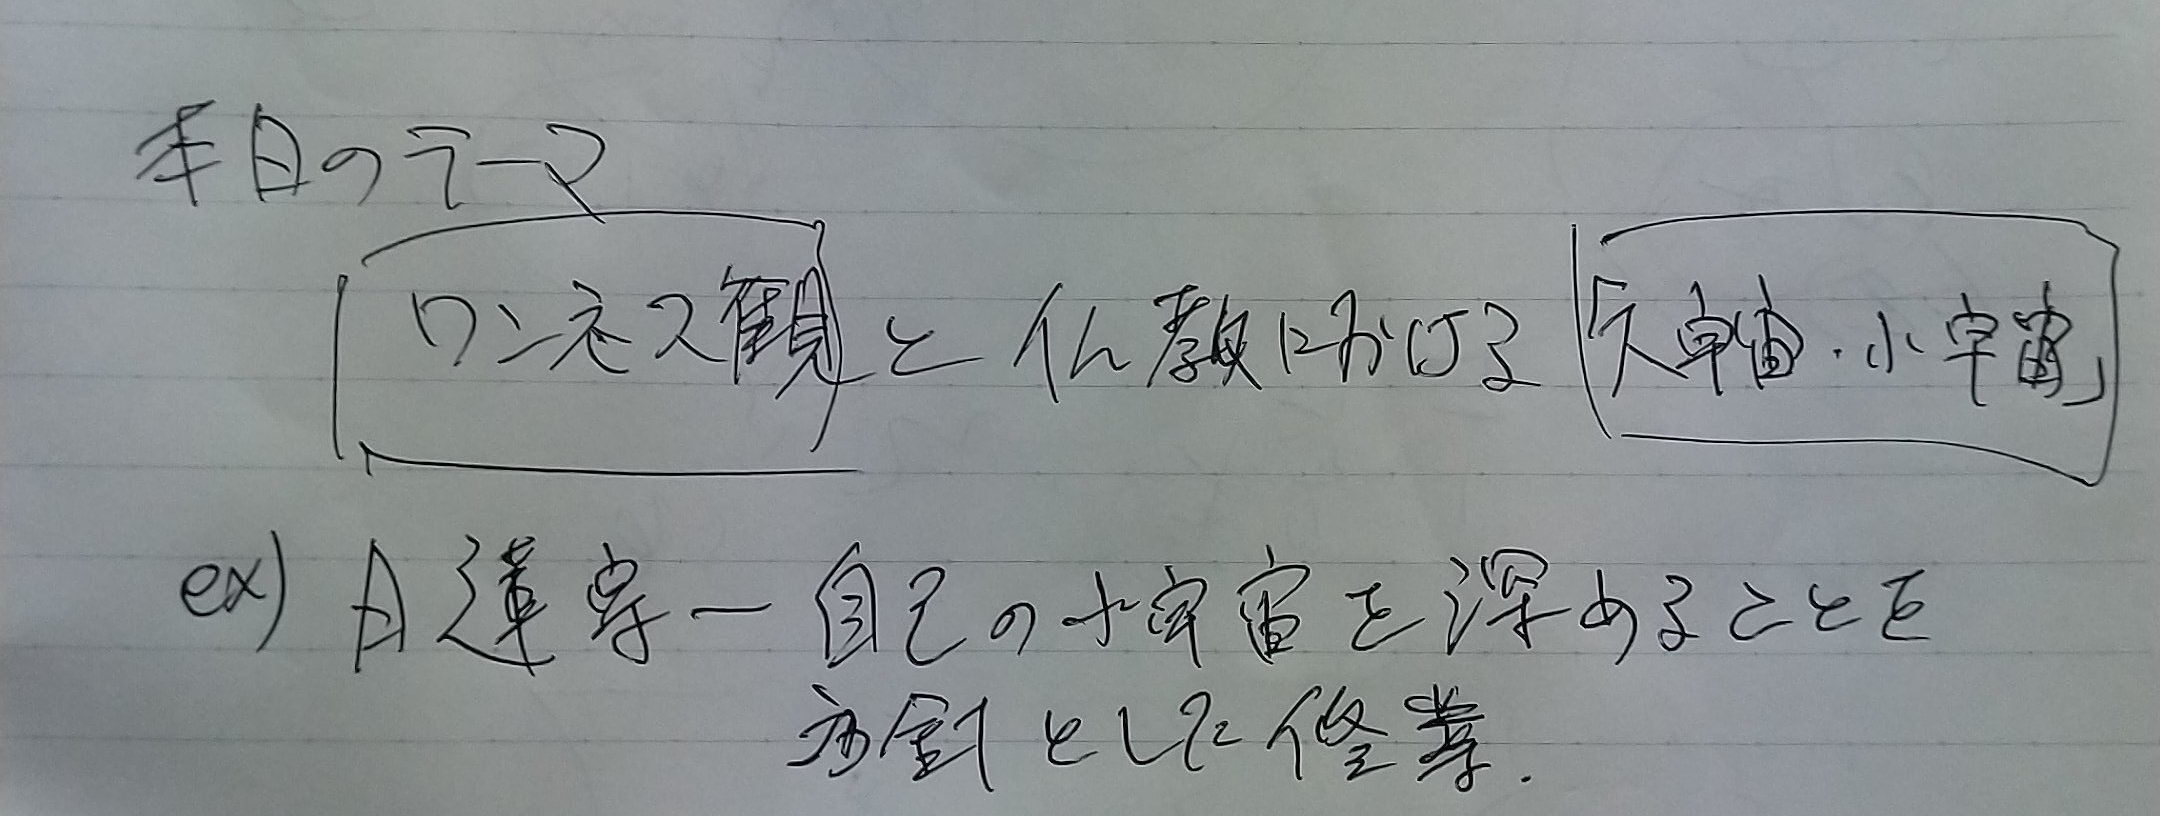 本日のテーマ
ワンネス観と仏教における「大宇宙・小宇宙」
ex) 日蓮宗ー自己の小宇宙を深めることを
方針とした修業.